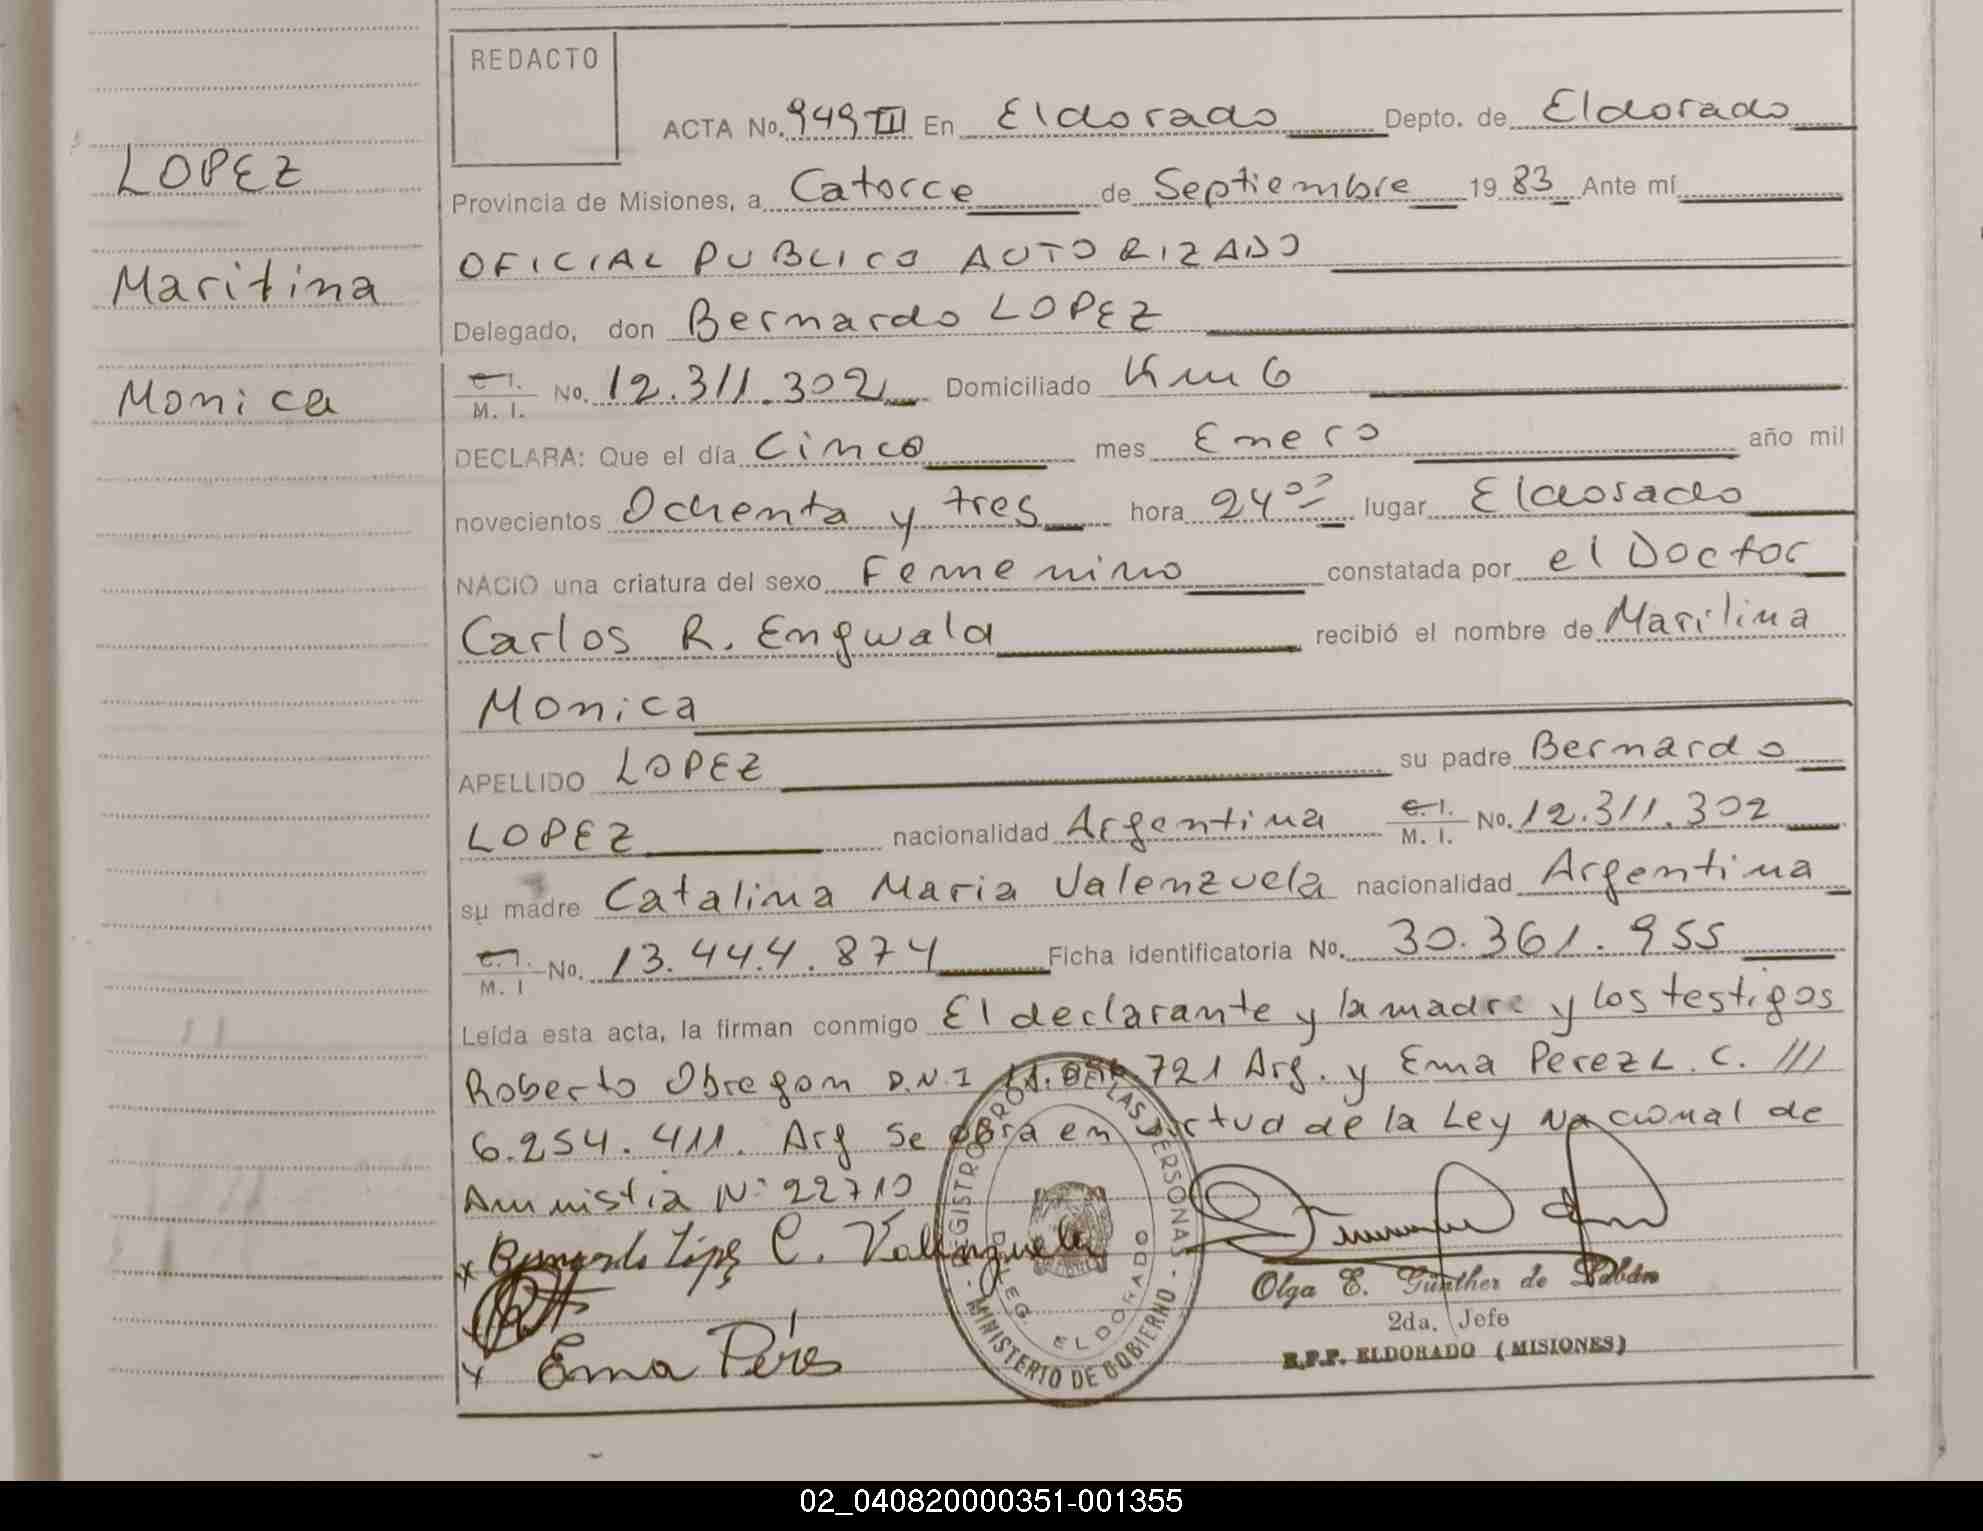 REDACTO
ACTA No. 949 III En Eldorado Depto. de Eldorado
LOPEZ
Provincia de Misiones, a Catorce de Septiembre 19 83 Ante mí
OFICIAL PUBLICO AUTORIZADO
Maritina
Delegado, don Bernardo LOPEZ
Monica
C. I. M. I. No. 12.311.302 Domiciliado Km 6
DECLARA: Que el día Cinco mes Enero año mil
novecientos Ochenta y tres hora 24 00 lugar Eldorado
NACIO una criatura del sexo Femenino constatada por el Doctor
Carlos R. Engwald recibió el nombre de Marilina
Monica
APELLIDO LOPEZ su padre Bernardo
LOPEZ nacionalidad Argentina C. I. M. I. No. 12.311.302
su madre Catalina Maria Valenzuela nacionalidad Argentina
C. I. M. I No. 13.444.874 Ficha identificatoria No. 30.361.955
Leída esta acta, la firman conmigo El declarante y la madre y los testigos
Roberto Obregon D.N.I 721 Arg. y Ema Perez L. C. ///
6.254.411. Arg Se obra en virtud de la Ley Nacional de
Amnistia N° 22710
x Bernardo López C. Vallenzuela
x Ema Péres
REGISTRO PROV. DE LAS PERSONAS
DELEG. ELDORADO
MINISTERIO DE GOBIERNO
Olga E. Günther de
2da. Jefe
R.P.P. ELDORADO (MISIONES)
02_040820000351-001355